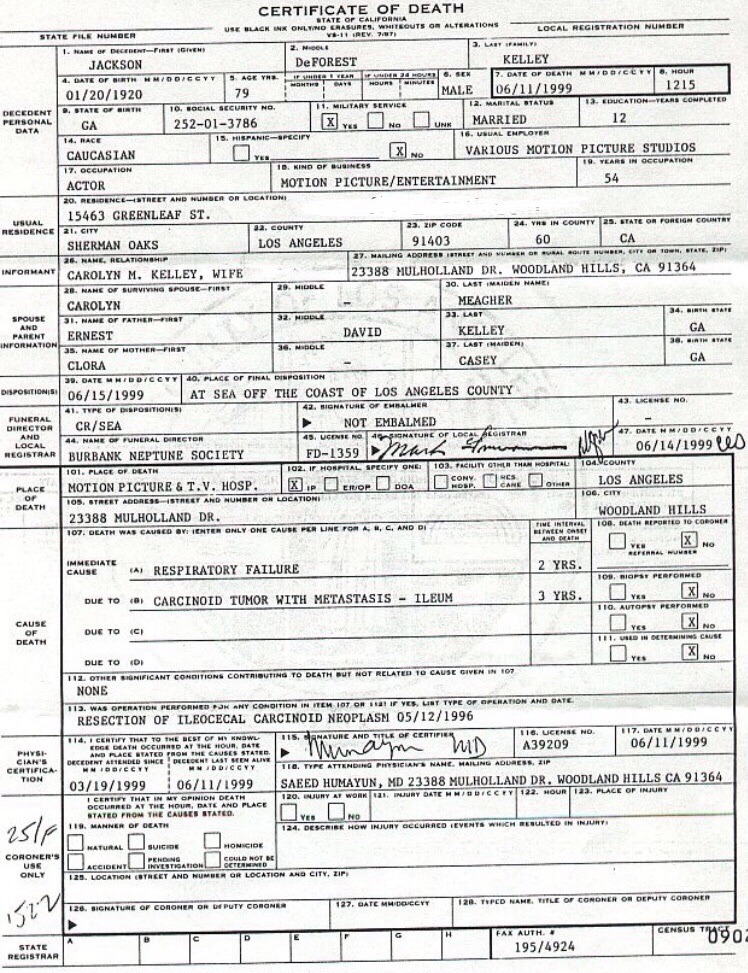 CERTIFICATE OF DEATH
STATE OF CALIFORNIA
USE BLACK INK ONLY/NO ERASURES, WHITEOUTS OR ALTERATIONS
STATE FILE NUMBER VS-11 (REV. 7/97) LOCAL REGISTRATION NUMBER
DECEDENT PERSONAL DATA
1. NAME OF DECEDENT—FIRST (GIVEN) 2. MIDDLE 3. LAST (FAMILY)
JACKSON DeFOREST KELLEY
4. DATE OF BIRTH MM/DD/CCYY 5. AGE YRS. IF UNDER 1 YEAR MONTHS DAYS IF UNDER 24 HOURS HOURS MINUTES 6. SEX 7. DATE OF DEATH MM/DD/CCYY 8. HOUR
01/20/1920 79 MALE 06/11/1999 1215
9. STATE OF BIRTH 10. SOCIAL SECURITY NO. 11. MILITARY SERVICE 12. MARITAL STATUS 13. EDUCATION—YEARS COMPLETED
GA 252-01-3786 X YES NO UNK MARRIED 12
14. RACE 15. HISPANIC—SPECIFY 16. USUAL EMPLOYER
CAUCASIAN YES X NO VARIOUS MOTION PICTURE STUDIOS
17. OCCUPATION 18. KIND OF BUSINESS 19. YEARS IN OCCUPATION
ACTOR MOTION PICTURE/ENTERTAINMENT 54
USUAL RESIDENCE
20. RESIDENCE—(STREET AND NUMBER OR LOCATION)
15463 GREENLEAF ST.
21. CITY 22. COUNTY 23. ZIP CODE 24. YRS IN COUNTY 25. STATE OR FOREIGN COUNTRY
SHERMAN OAKS LOS ANGELES 91403 60 CA
INFORMANT
26. NAME, RELATIONSHIP 27. MAILING ADDRESS (STREET AND NUMBER OR RURAL ROUTE NUMBER, CITY OR TOWN, STATE, ZIP)
CAROLYN M. KELLEY, WIFE 23388 MULHOLLAND DR. WOODLAND HILLS, CA 91364
SPOUSE AND PARENT INFORMATION
28. NAME OF SURVIVING SPOUSE—FIRST 29. MIDDLE 30. LAST (MAIDEN NAME)
CAROLYN – MEAGHER
31. NAME OF FATHER—FIRST 32. MIDDLE 33. LAST 34. BIRTH STATE
ERNEST DAVID KELLEY GA
35. NAME OF MOTHER—FIRST 36. MIDDLE 37. LAST (MAIDEN) 38. BIRTH STATE
CLORA – CASEY GA
DISPOSITION(S)
39. DATE MM/DD/CCYY 40. PLACE OF FINAL DISPOSITION
06/15/1999 AT SEA OFF THE COAST OF LOS ANGELES COUNTY
FUNERAL DIRECTOR AND LOCAL REGISTRAR
41. TYPE OF DISPOSITION(S) 42. SIGNATURE OF EMBALMER 43. LICENSE NO.
CR/SEA ▶ NOT EMBALMED –
44. NAME OF FUNERAL DIRECTOR 45. LICENSE NO. 46. SIGNATURE OF LOCAL REGISTRAR 47. DATE MM/DD/CCYY
BURBANK NEPTUNE SOCIETY FD-1359 ▶ 06/14/1999
PLACE OF DEATH
101. PLACE OF DEATH 102. IF HOSPITAL, SPECIFY ONE: 103. FACILITY OTHER THAN HOSPITAL: 104. COUNTY
MOTION PICTURE & T.V. HOSP. X IP ER/OP DOA CONV. HOSP. RES. CARE OTHER LOS ANGELES
105. STREET ADDRESS—(STREET AND NUMBER OR LOCATION) 106. CITY
23388 MULHOLLAND DR. WOODLAND HILLS
CAUSE OF DEATH
107. DEATH WAS CAUSED BY: (ENTER ONLY ONE CAUSE PER LINE FOR A, B, C, AND D) TIME INTERVAL BETWEEN ONSET AND DEATH 108. DEATH REPORTED TO CORONER
YES X NO
REFERRAL NUMBER
IMMEDIATE CAUSE (A) RESPIRATORY FAILURE 2 YRS.
109. BIOPSY PERFORMED
DUE TO (B) CARCINOID TUMOR WITH METASTASIS - ILEUM 3 YRS. YES X NO
110. AUTOPSY PERFORMED
DUE TO (C) YES X NO
111. USED IN DETERMINING CAUSE
DUE TO (D) YES X NO
112. OTHER SIGNIFICANT CONDITIONS CONTRIBUTING TO DEATH BUT NOT RELATED TO CAUSE GIVEN IN 107
NONE
113. WAS OPERATION PERFORMED FOR ANY CONDITION IN ITEM 107 OR 112? IF YES, LIST TYPE OF OPERATION AND DATE.
RESECTION OF ILEOCECAL CARCINOID NEOPLASM 05/12/1996
PHYSICIAN'S CERTIFICATION
114. I CERTIFY THAT TO THE BEST OF MY KNOWLEDGE DEATH OCCURRED AT THE HOUR, DATE AND PLACE STATED FROM THE CAUSES STATED.
DECEDENT ATTENDED SINCE MM/DD/CCYY DECEDENT LAST SEEN ALIVE MM/DD/CCYY
03/19/1999 06/11/1999
115. SIGNATURE AND TITLE OF CERTIFIER 116. LICENSE NO. 117. DATE MM/DD/CCYY
▶ Humayun MD A39209 06/11/1999
118. TYPE ATTENDING PHYSICIAN'S NAME, MAILING ADDRESS, ZIP
SAEED HUMAYUN, MD 23388 MULHOLLAND DR. WOODLAND HILLS CA 91364
CORONER'S USE ONLY
I CERTIFY THAT IN MY OPINION DEATH OCCURRED AT THE HOUR, DATE AND PLACE STATED FROM THE CAUSES STATED.
119. MANNER OF DEATH
NATURAL SUICIDE HOMICIDE
ACCIDENT PENDING INVESTIGATION COULD NOT BE DETERMINED
120. INJURY AT WORK 121. INJURY DATE MM/DD/CCYY 122. HOUR 123. PLACE OF INJURY
YES NO
124. DESCRIBE HOW INJURY OCCURRED (EVENTS WHICH RESULTED IN INJURY)
125. LOCATION (STREET AND NUMBER OR LOCATION AND CITY, ZIP)
126. SIGNATURE OF CORONER OR DEPUTY CORONER 127. DATE MM/DD/CCYY 128. TYPED NAME, TITLE OF CORONER OR DEPUTY CORONER
▶
STATE REGISTRAR
A B C D E F G H FAX AUTH. # CENSUS TRACT
195/4924 0902